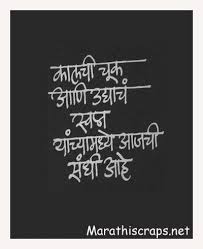 कालची चूक
आणि उद्याचं
स्वप्न
यांच्यामध्ये आजची
संधी आहे
Marathiscraps.net